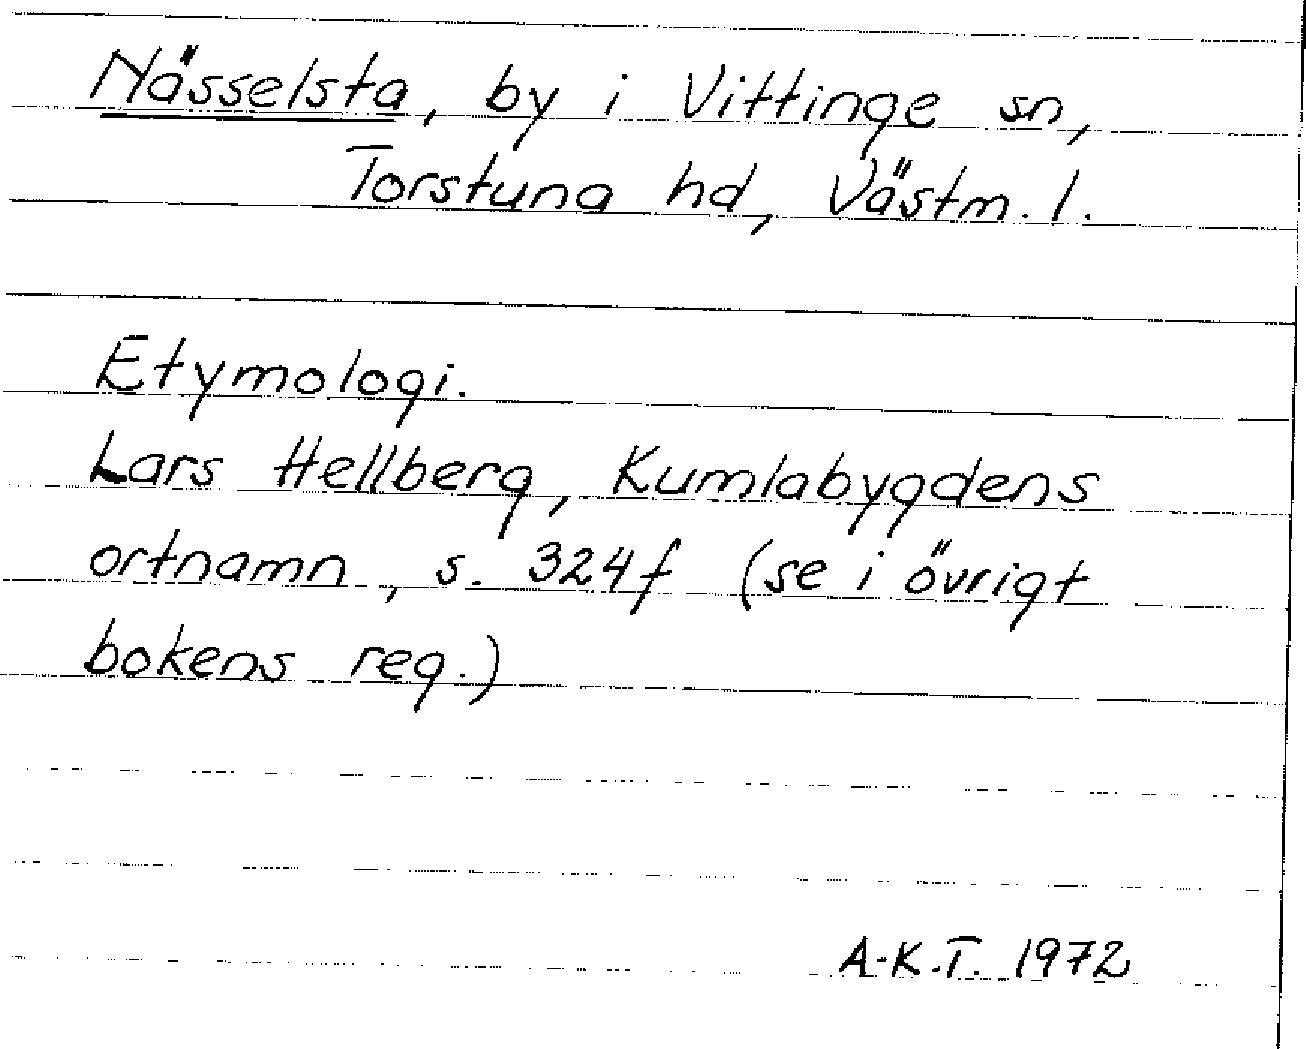 Nässelsta, by i Vittinge sn,
Torstuna hd, Västm. l.
Etymologi.
Lars Hellberg, Kumlabygdens
ortnamn, s. 324f (se i övrigt
bokens reg.)
A-K.T. 1972